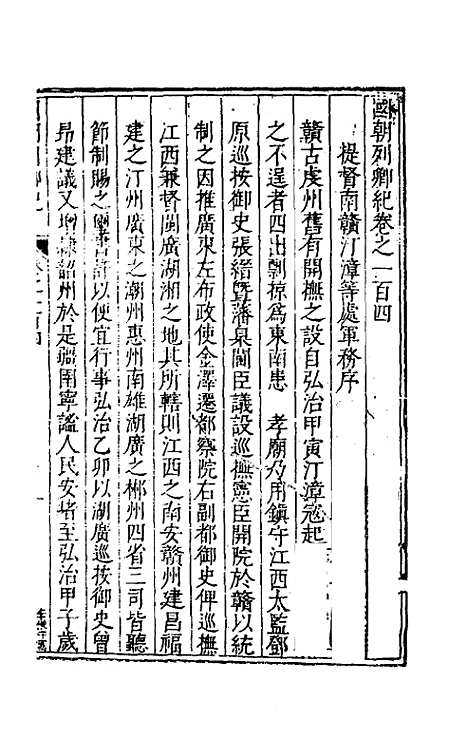 國朝列卿紀卷之一百四
提督南贛汀漳等處軍務序
贛古虔州舊有開撫之設自弘治甲寅汀漳寇起
之不逞者四出剽掠爲東南患 孝廟乃用鎮守江西太監鄧
原巡按御史張縉暨藩臬閫臣議設巡撫憲臣開院於贛以統
制之因推廣東左布政使金澤遷都察院右副都御史俾巡撫
江西兼督閩廣湖湘之地其所轄則江西之南安贛州建昌福
建之汀州廣東之潮州惠州南雄湖廣之郴州四省三司皆聽
節制賜之璽書許以便宜行事弘治乙卯以湖廣巡按御史曾
昂建議又增隷韶州於是疆圉寧謐人民安堵至弘治甲子歲